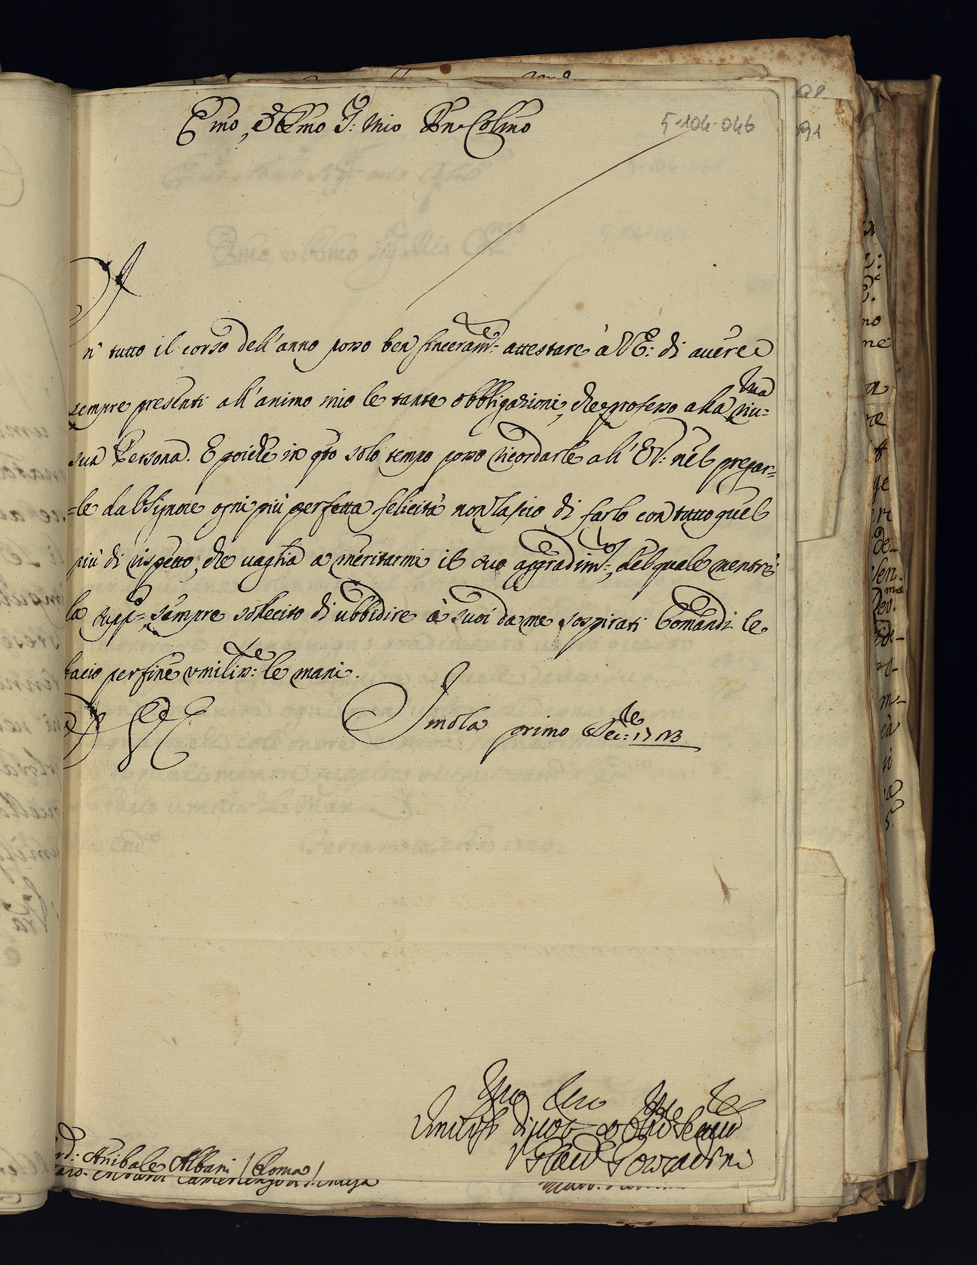 Emo, e Rmo S: Mio Pne Colmo
5-104-046
In tutto il corso dell'anno posso ben sinceramte: attestare à V E: di avere
sempre presenti all'animo mio le tante obbligazioni, che professo alla
sua Persona. E poiche in qto solo tempo posso ricordarle all' E V: nel pregar=
=le dal Signore ogni più perfetta felicità non lascio di farlo con tutto quel
più di rispetto, che vaglia a meritarmi il suo aggradimto:, del quale mentre
la suppco sempre sollecito di ubbidire à suoi da me sospirati Comandi le
bacio per fine umilmte: le mani.
Imola primo Dec:
Card: Anibale Albani / Roma /